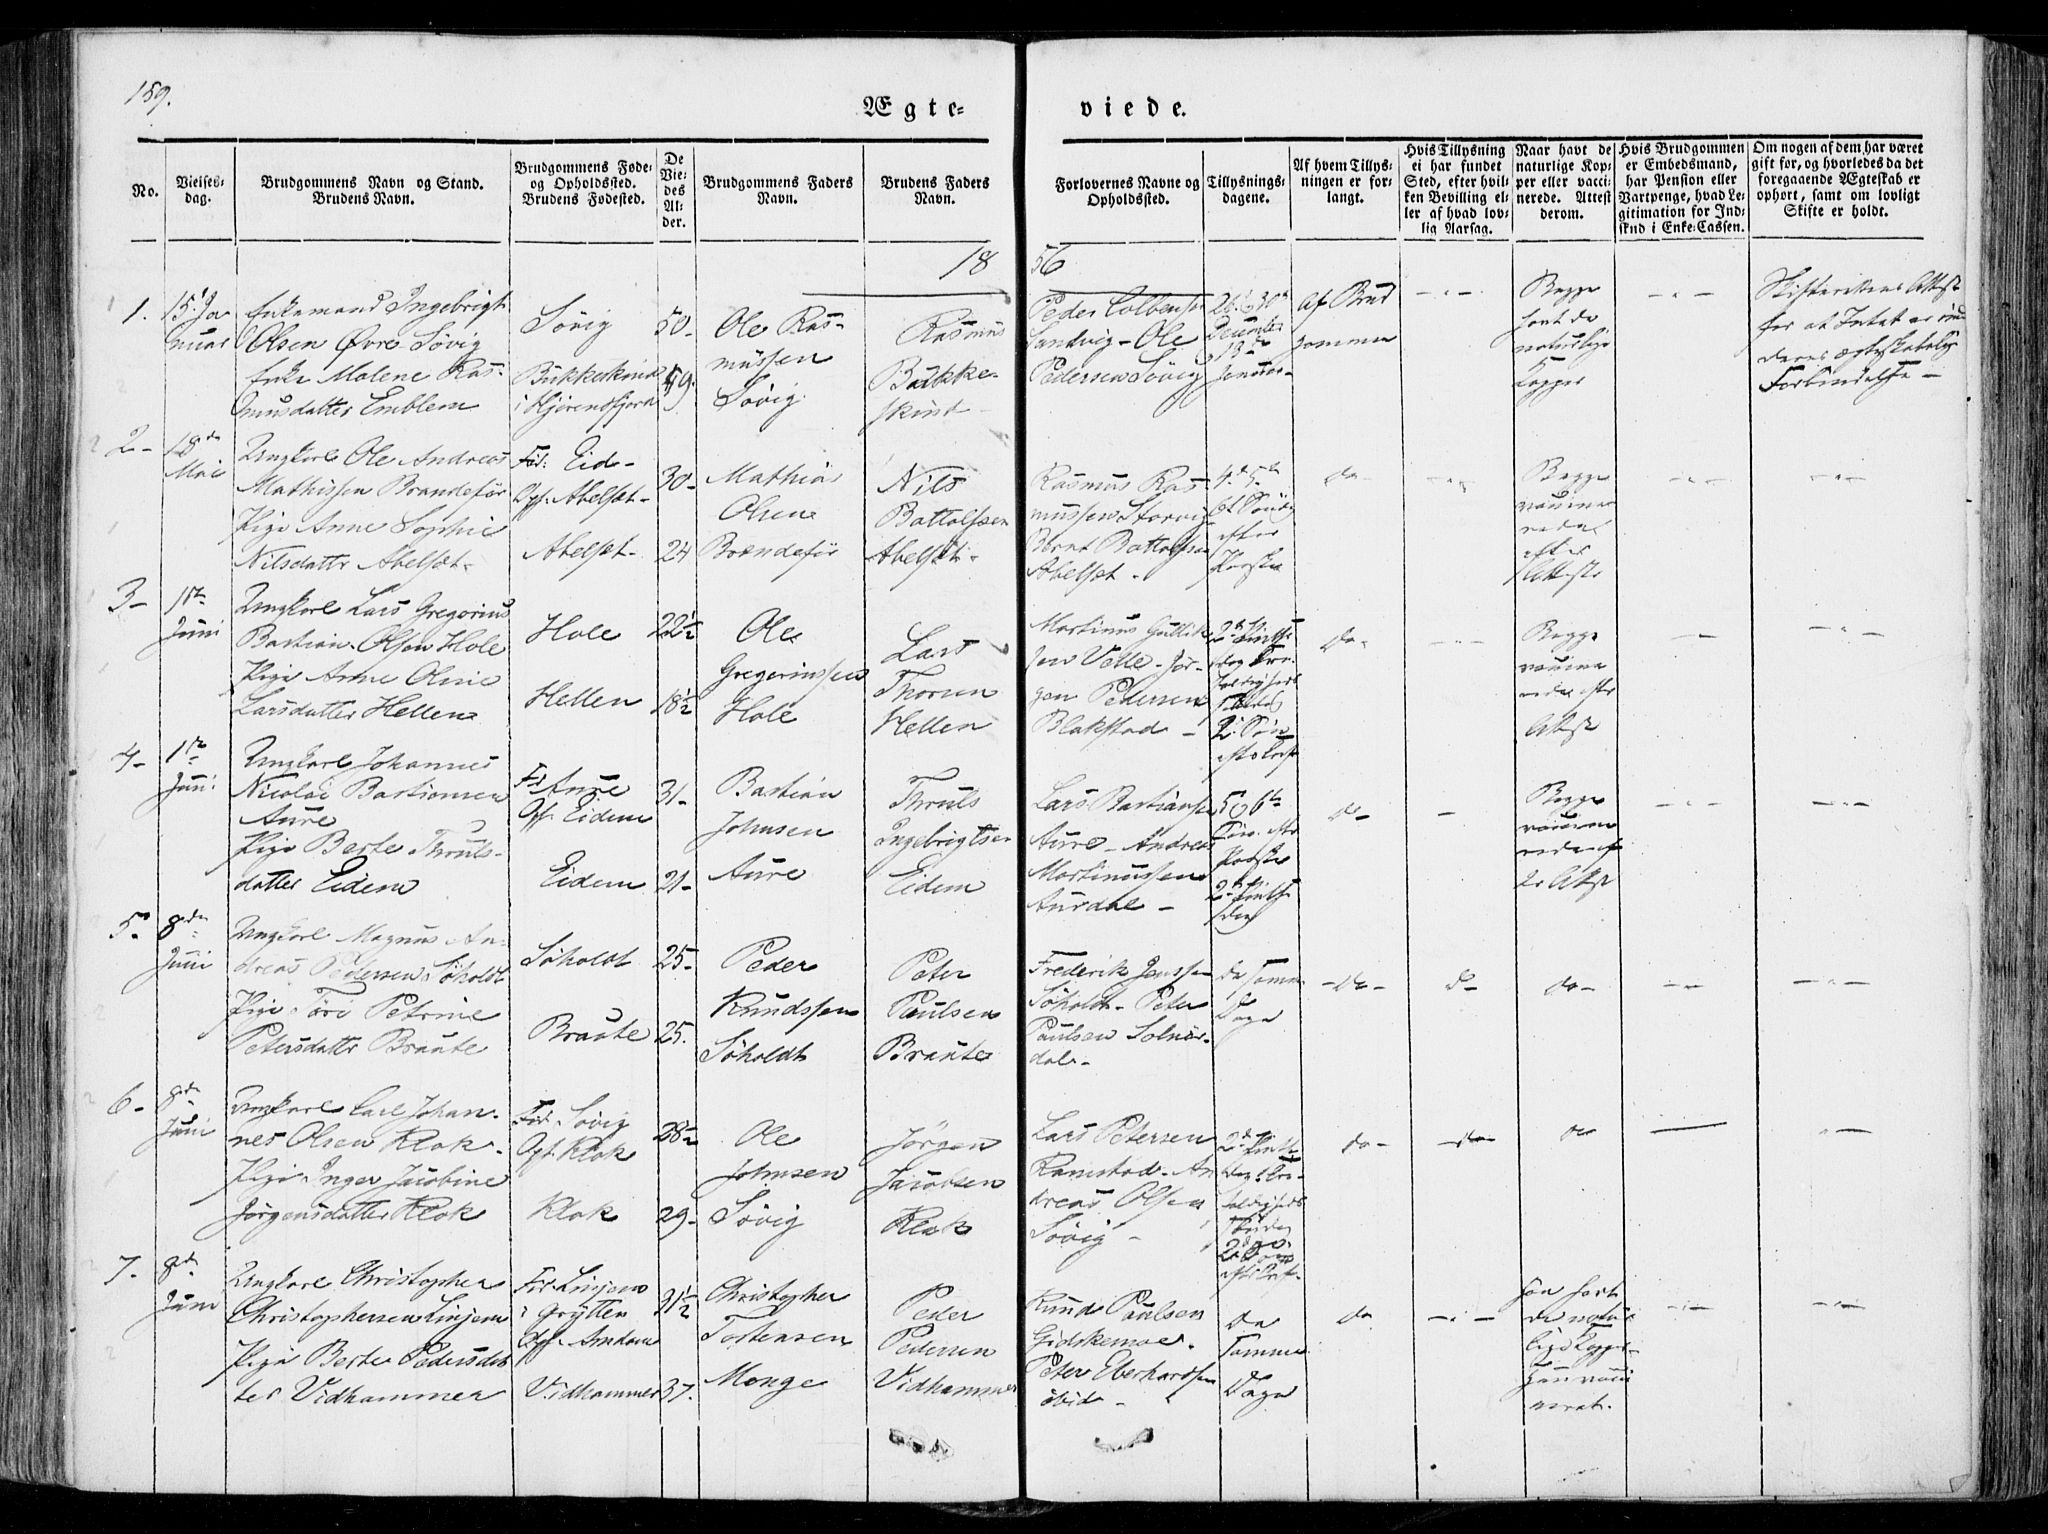 159.
Ægte=
viede.
No.
Vielses=
dag.
Brudgommens Navn og Stand.
Brudens Navn.
Brudgommens Føde=
og Opholdssted.
Brudens Fødested.
De
Vie=
des
Al=
der.
Brudgommens Faders
Navn.
Brudens Faders
Navn.
Forlovernes Navne og
Opholdssted.
Tillysnings=
dagene.
Af hvem Tillys=
ningen er for=
langt.
Hvis Tillysning
ei har fundet
Sted, efter hvil=
ken Bevilling el=
ler af hvad lov=
lig Aarsag.
Naar havt de
naturlige Kop=
per eller vacci=
nerede. Attest
derom.
Hvis Brudgommen
er Embedsmand,
har Pension eller
Vartpenge, hvad Le=
gitimation for Ind=
skud i Enke=Cassen.
Om nogen af dem har været
gift før, og hvorledes da det
foregaaende Ægteskab er
ophørt, samt om lovligt
Skifte er holdt.
18
56
1.
15. Ja
nuar
Enkemand Ingebrigt
Olsen Øvre Søvig
Enke Malene Ras-
musdatter Emblem
Søvig
Bukkeskind
i Hjørendfjord
50-
59.
Ole Ras-
mussen
Søvig
Rasmus
Bukke-
skind
Peder Colbensen
Sandvig - Ole
Pedersen Søvig
26. & 30te
December
13de
Januar-
Af Brud
gommen
-"-
Begge
havt de
naturlige
Kopper
-"-
Skifterettens Attest
for at Intet er i
deres ægteskabelige
Forbindelse -
2-
18de
Mai
Ungkarl Ole Andreas
Mathissen Brandefør
Pige Anne Sophie
Nilsdattr Abelsæt-
Fød: Eid-
Oph. Abelsæt-
Abelsæt-
30-
24
Mathias
Olsen
Brændefør
Nils
Battolfsen
Abelsæt-
Rasmus Ras-
mussen Storvig
Bernt Battolfsen
Abelsæt-
4de 5te
6te Søndg
efter
Paaske
do-
-"-
Begge
vaccine
rede
efter
Atteste
-"-
-"-
3-
1ste
Juni
Ungkarl Lars Gregorius
Bastian Olsen Hole
Pige Anne Oline
Larsdatter Hellen
Hole
Hellen
22½
18½
Ole
Gregeriussen
Hole
Lars
Thorsen
Hellen
Martinus Gullik
sen Valle - Jør-
gen Pedersen
Blakstad -
2den Pintse
dag Tre-
foldigheds
Søndag
2. Søn
efter Trefo
do-
-"-
Begge
vaccine
rede efter
Attest
-"-
-"-
4-
1ste
Juni
Ungkarl Johannes
Nicolai Bastiansen
Aure
Pige Berte Thruls-
datter Eidem
Fd Aure
Oph. Eidem
Eidem
31-
21-
Bastian
Johnsen
Aure
Thruls
Ingebrigtsen
Eidem
Lars Bastiansen
Aure - Andreas
Martinussen
Aurdal -
5 & 6te
Søn. eftr
Paaske
2den Pintse
dag
do-
-
Begge
vaccine
rede ef
ter Attest
-"-
-"-
5-
8de
Juni
Ungkarl Magnus An-
dreas Pedersen Søholdt
Pige Søre Petrine
Petersdattr Braute
Søholdt
Braute
25-
25.
Peder
Knudssen
Søholdt
Peter
Paulsen
Braute
Frederik Jenssen
Søholdt - Peter
Paulsen Solnør-
dal-
de samme
Dage
-do-
do-
do-
-"-
-"-
6-
8de
Juni
Ungkarl Carl Johan-
nes Olsen Klok-
Pige Inger Jacobine
Jørgensdatter Klok
Fød. Søvig
Oph. Klok
Klok
28½
29-
Ole
Johnsen
Søvig
Jørgen
Jacobsen
Klok
Lars Petersen
Ramstad - An
dreas Olsen
Søvig -
2den Pintse
Dag Tre-
foldigheds
Søndag
2den Søn
efter Tref-
do-
do-
do
-
-"-
7.
8de
Juni
Ungkarl Christopher
Christophersen Linjem
Pige Berte Pedersdat
ter Vidhammer
Fød Linjem
i Grytten
Oph. Amdam
Vidhammer
31½
37.
Christopher
Tostensen
Monge
Peder
Pedersen
Vidhammer
Knud Paulsen
Gidskemoe-
Peter Eberhardssen
ibid-
De
Samme
Dage
do
-"-
Han havt
de natur
lige Kopper-
Hun vacci
nerat.
-"-
-"-